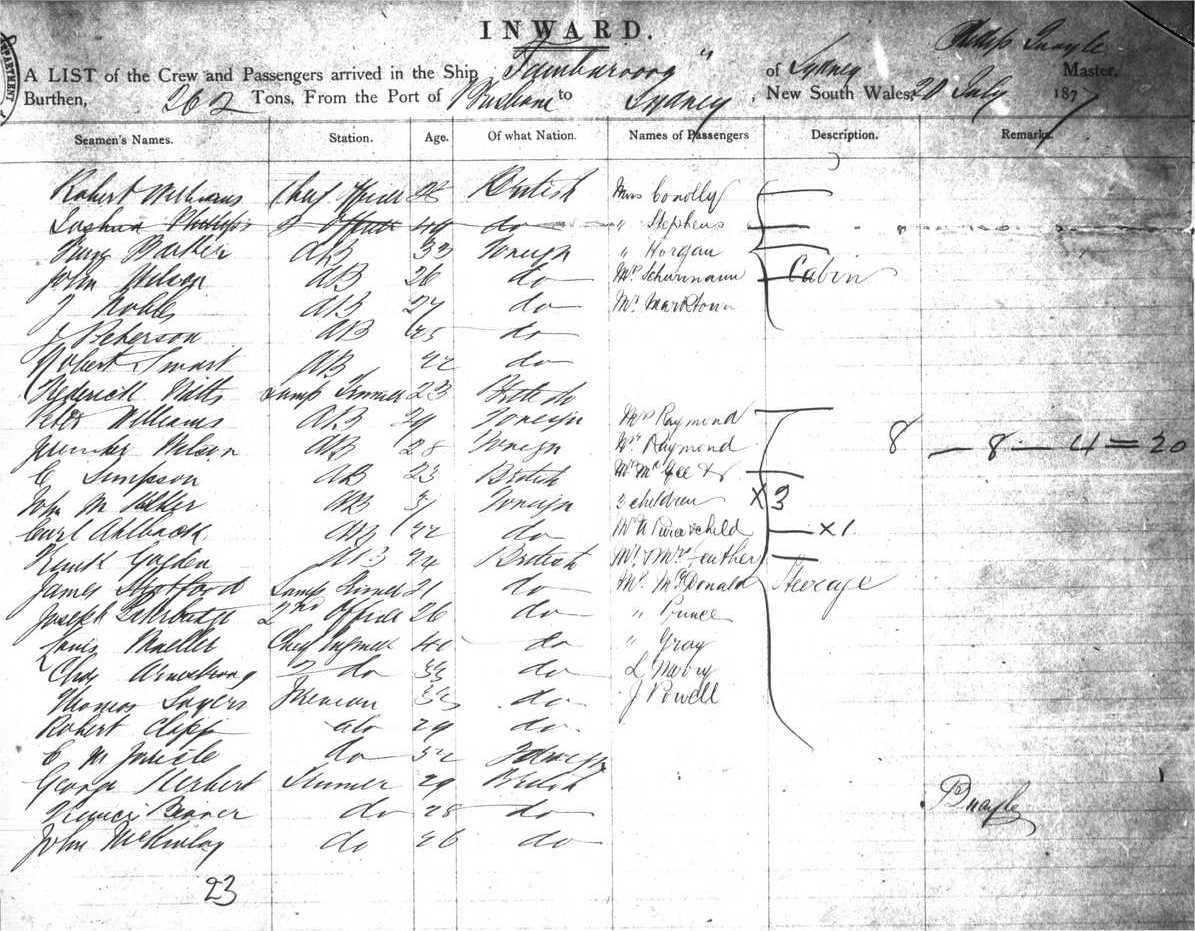 INWARD.
DEPARTMENT
Quayle
A LIST of the Crew and Passengers arrived in the Ship "Tambaroora" of Sydney Master,
Burthen, 262 Tons, From the Port of Brisbane to Sydney, New South Wales, 20 July 1877
Seamen's Names. Station. Age. Of what Nation. Names of Passengers Description. Remarks.
Robert Williams Chief Officer 28 British Mrs Conolly
Joshua Phillips 2 Officer 44 do " Stephens
Barker AB 33 Foreign " Horgan
John Nelson AB 26 do Mr Schurmann Cabin
J Noble AB 27 do Mr
J Peterson AB 25 do
Robert Smart AB 42 do
Frederick Lamp Trimmer 23 British
Peter Williams AB 29 Foreign Mrs Raymond
Nelson AB 28 Foreign Mr Raymond 8 — 8 — 4 = 20
C Simpson AB 23 British Mrs McGee &
John M AB 31 Foreign 3 children X 3
Carl AB 42 do child X 1
AB 24 British Mr & Mrs
James Lamp Trimmer 21 do Mr McDonald Steerage
Joseph 2nd Officer 26 do " Prince
Louis Mueller Chief 40 do " Gray
Chas Armstrong 2 do 33 do L
Thomas Sayers Fireman 32 do J Powell
Robert do 29 do
C M do 32 Foreign
George Herbert Trimmer 29 British
do 28 do Quayle
John McKinlay do 26 do
23